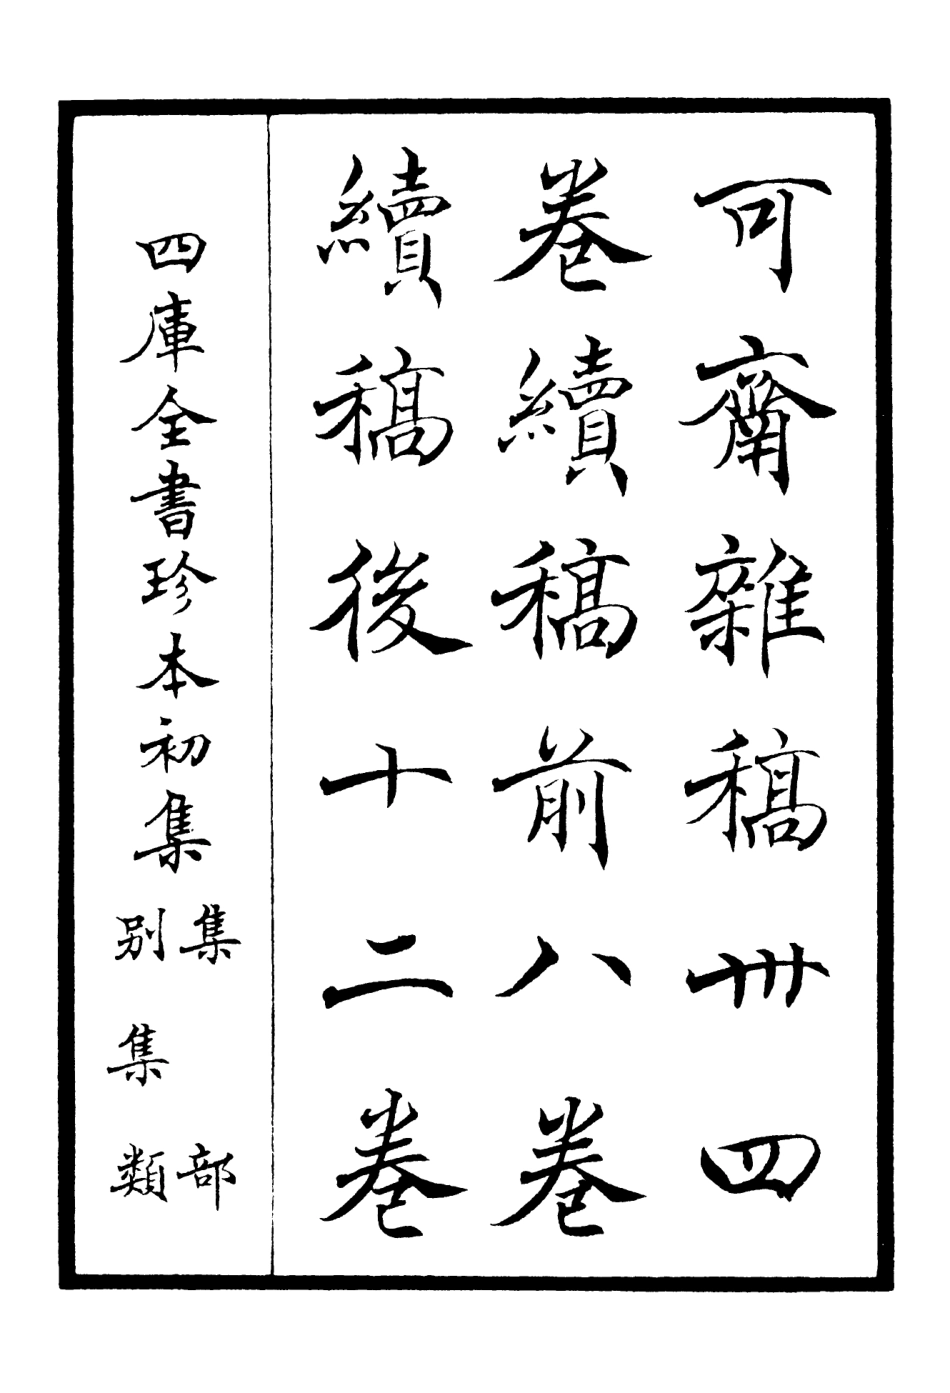 可齋雜稿卅四
卷續稿前八卷
續稿後十二卷
四庫全書珍本初集
集部
別集類